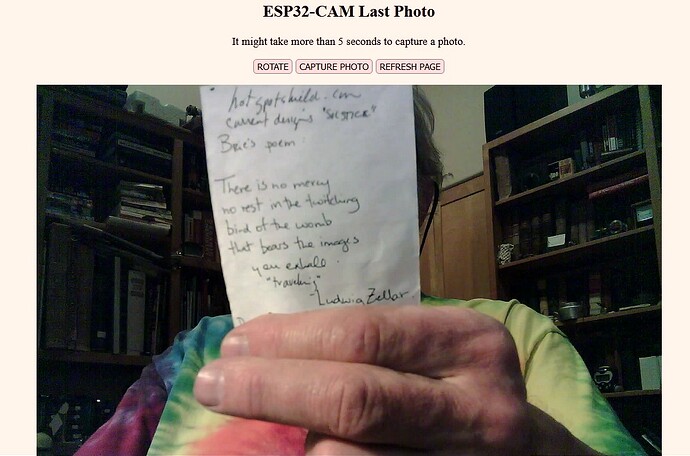 ESP32-CAM Last Photo
It might take more than 5 seconds to capture a photo.
ROTATE CAPTURE PHOTO REFRESH PAGE
hotspotshield.com
current designs "SOLSTICE"
Brie's poem:
There is no mercy
no rest in the twitching
bird of the womb
that bears the images
you exhale.
"traveling"
-Ludwig Zellar